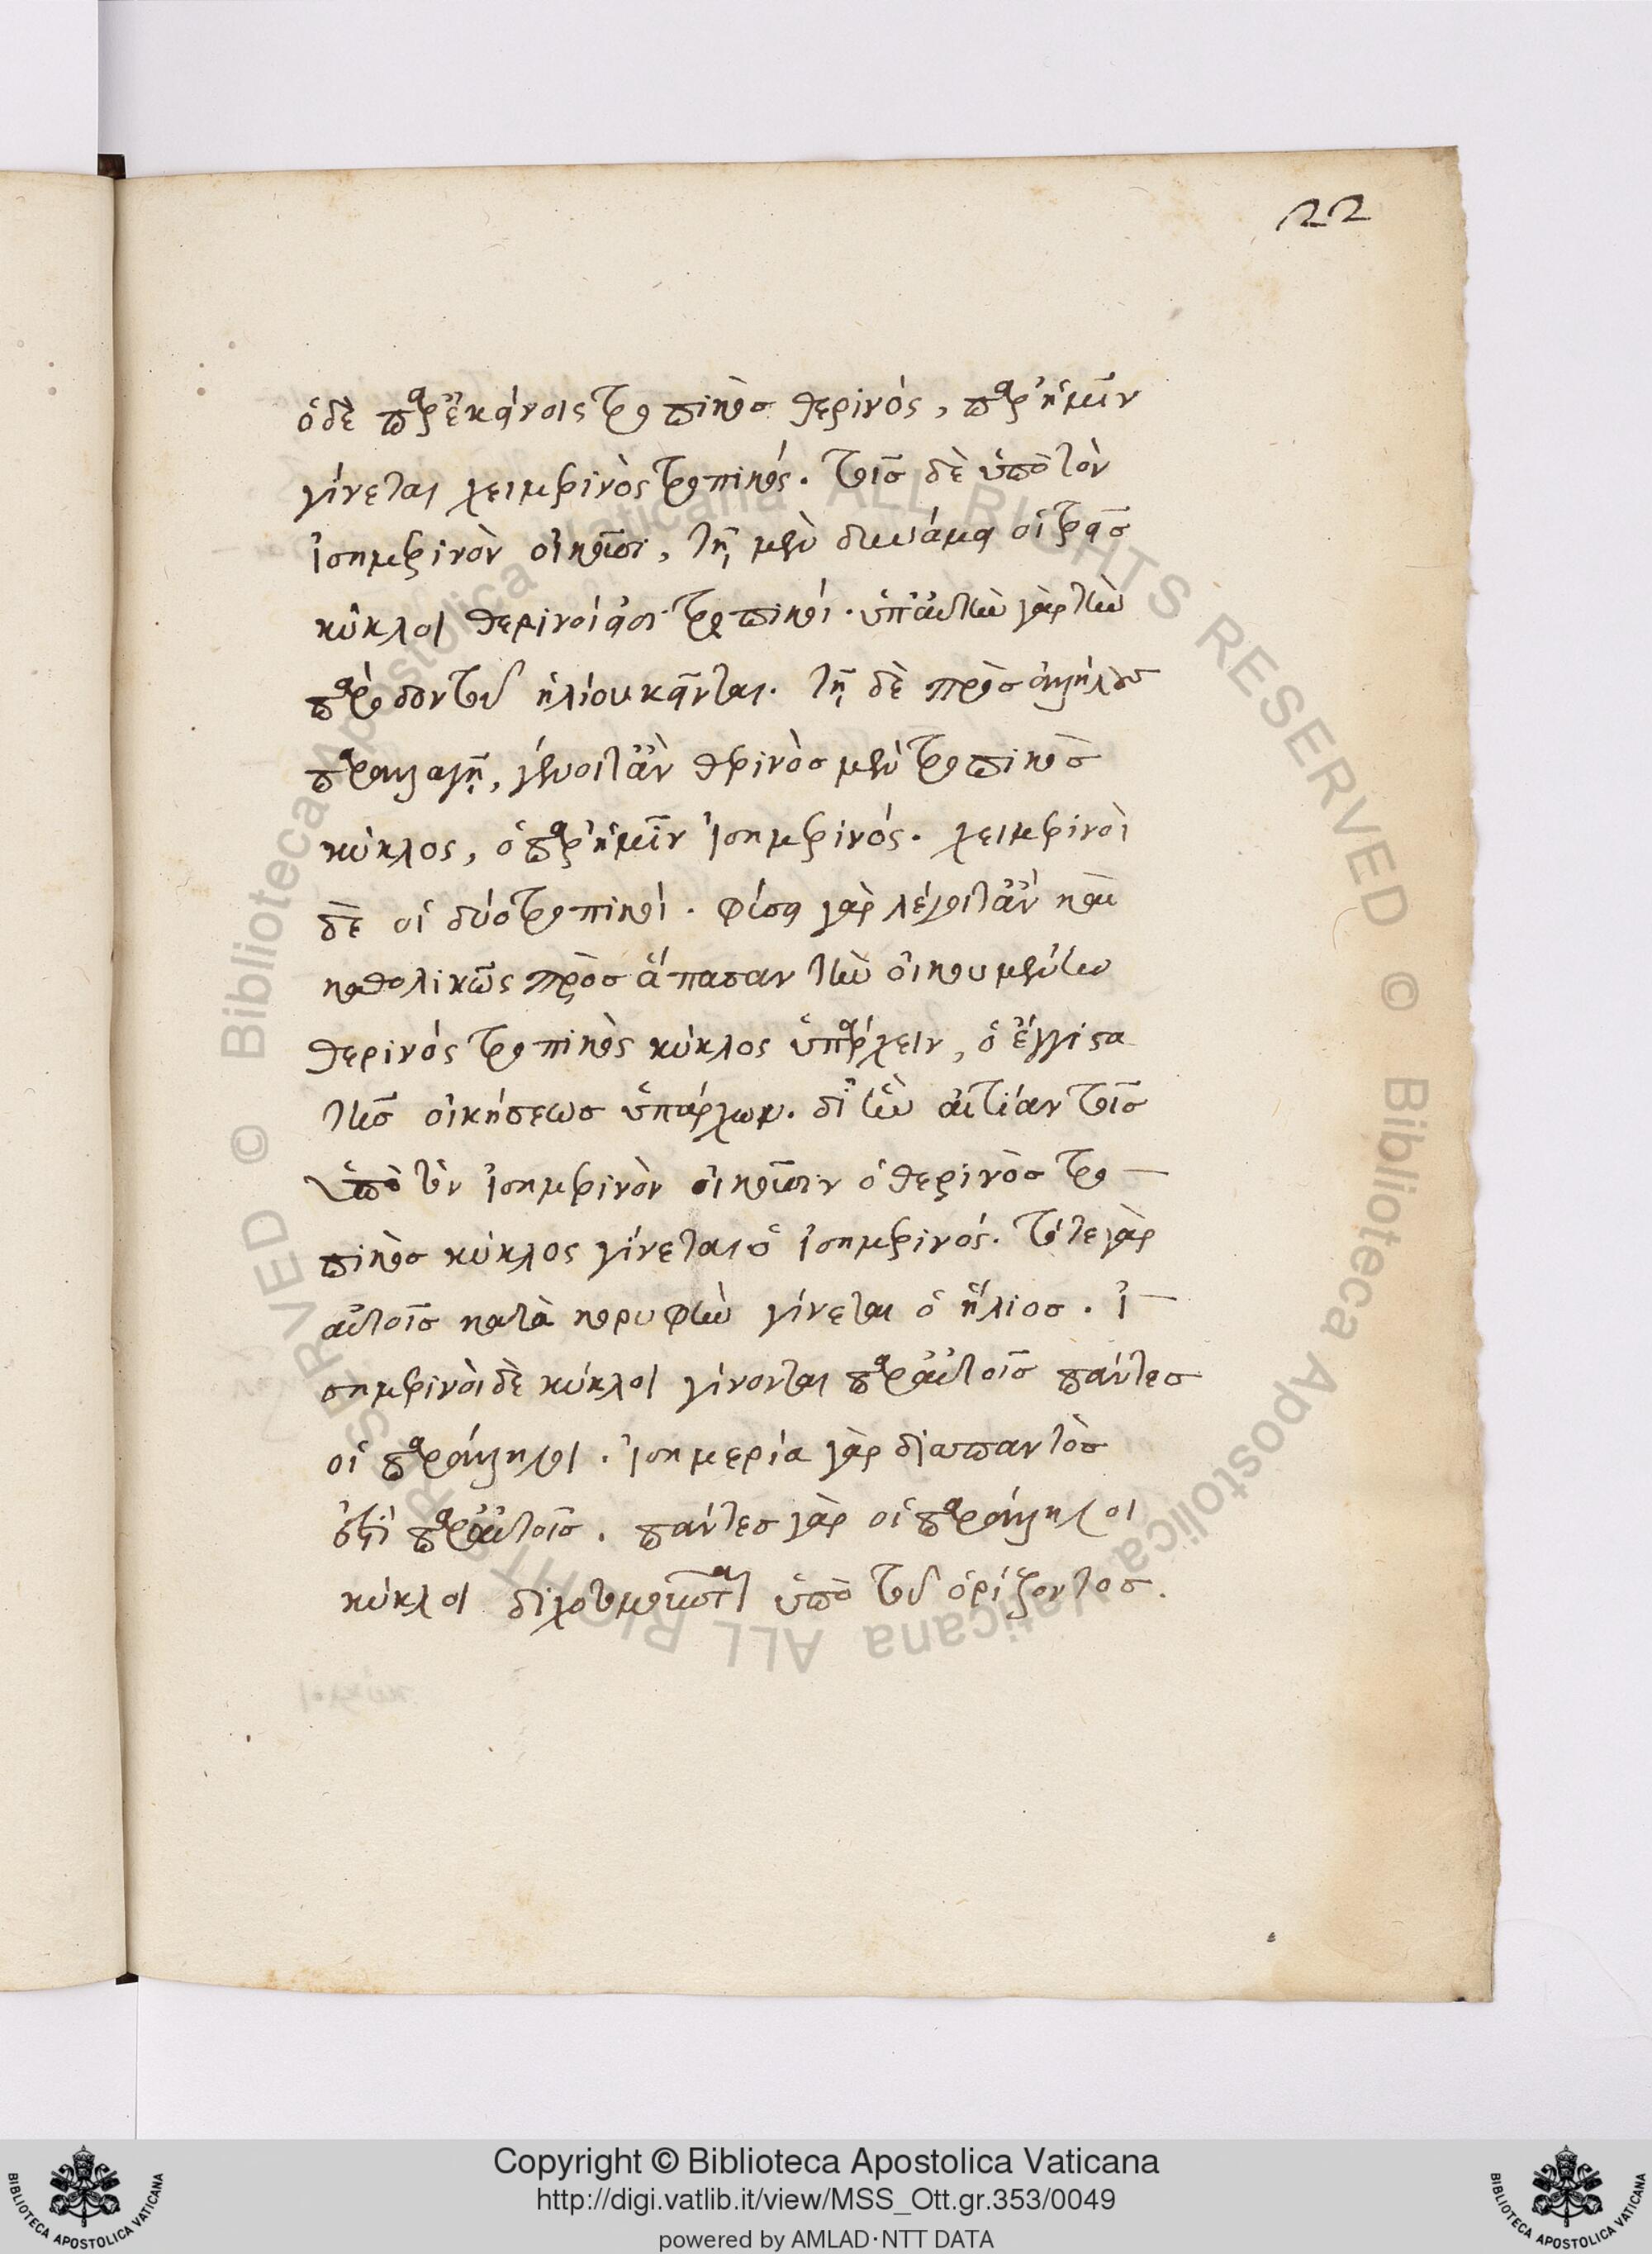 22
ὁ δὲ παρ' ἐκείνοις τροπικὸς θερινός, παρ' ἡμῖν
γίνεται χειμερινὸς τροπικός. τοῖς δὲ ὑπὸ τὸν
ἰσημερινὸν οἰκοῦσι, τῇ μὲν δυνάμει οἱ τρεῖς
κύκλοι θερινοί εἰσι τροπικοί. ὑπ' αὐτὴν γὰρ τὴν
πάροδον τοῦ ἡλίου κεῖνται. τῇ δὲ πρὸς ἀλλήλους
παραλλαγῇ, γένοιτ' ἂν θερινὸς μὲν τροπικὸς
κύκλος, ὁ παρ' ἡμῖν ἰσημερινός. χειμερινοὶ
δὲ οἱ δύο τροπικοί. φύσει γὰρ λέγοιτ' ἂν καὶ
καθολικῶς πρὸς ἅπασαν τὴν οἰκουμένην
θερινός τροπικὸς κύκλος ὑπάρχειν, ὁ ἔγγιστα
τῆς οἰκήσεως ὑπάρχων. δι' ἣν αἰτίαν τοῖς
ὑπὸ τὸν ἰσημερινὸν οἰκοῦσιν ὁ θερινὸς τρο-
πικὸς κύκλος γίνεται ὁ ἰσημερινός. τότε γὰρ
αὐτοῖς κατὰ κορυφὴν γίνεται ὁ ἥλιος. ἰ-
σημερινοὶ δὲ κύκλοι γίνονται παρ' αὐτοῖς πάντες
οἱ παράλληλοι. ἰσημερία γὰρ διαπαντὸς
ἐστὶ παρ' αὐτοῖς. πάντες γὰρ οἱ παράλληλοι
κύκλοι διχοτομοῦνται ὑπὸ τοῦ ὁρίζοντος.
Copyright © Biblioteca Apostolica Vaticana
http://digi.vatlib.it/view/MSS_Ott.gr.353/0049
powered by AMLAD·NTT DATA
BIBLIOTECA APOSTOLICA VATICANA
BIBLIOTECA APOSTOLICA VATICANA
© Biblioteca Apostolica Vaticana ALL RIGHTS RESERVED © Biblioteca Apostolica Vaticana ALL RIGHTS RESERVED